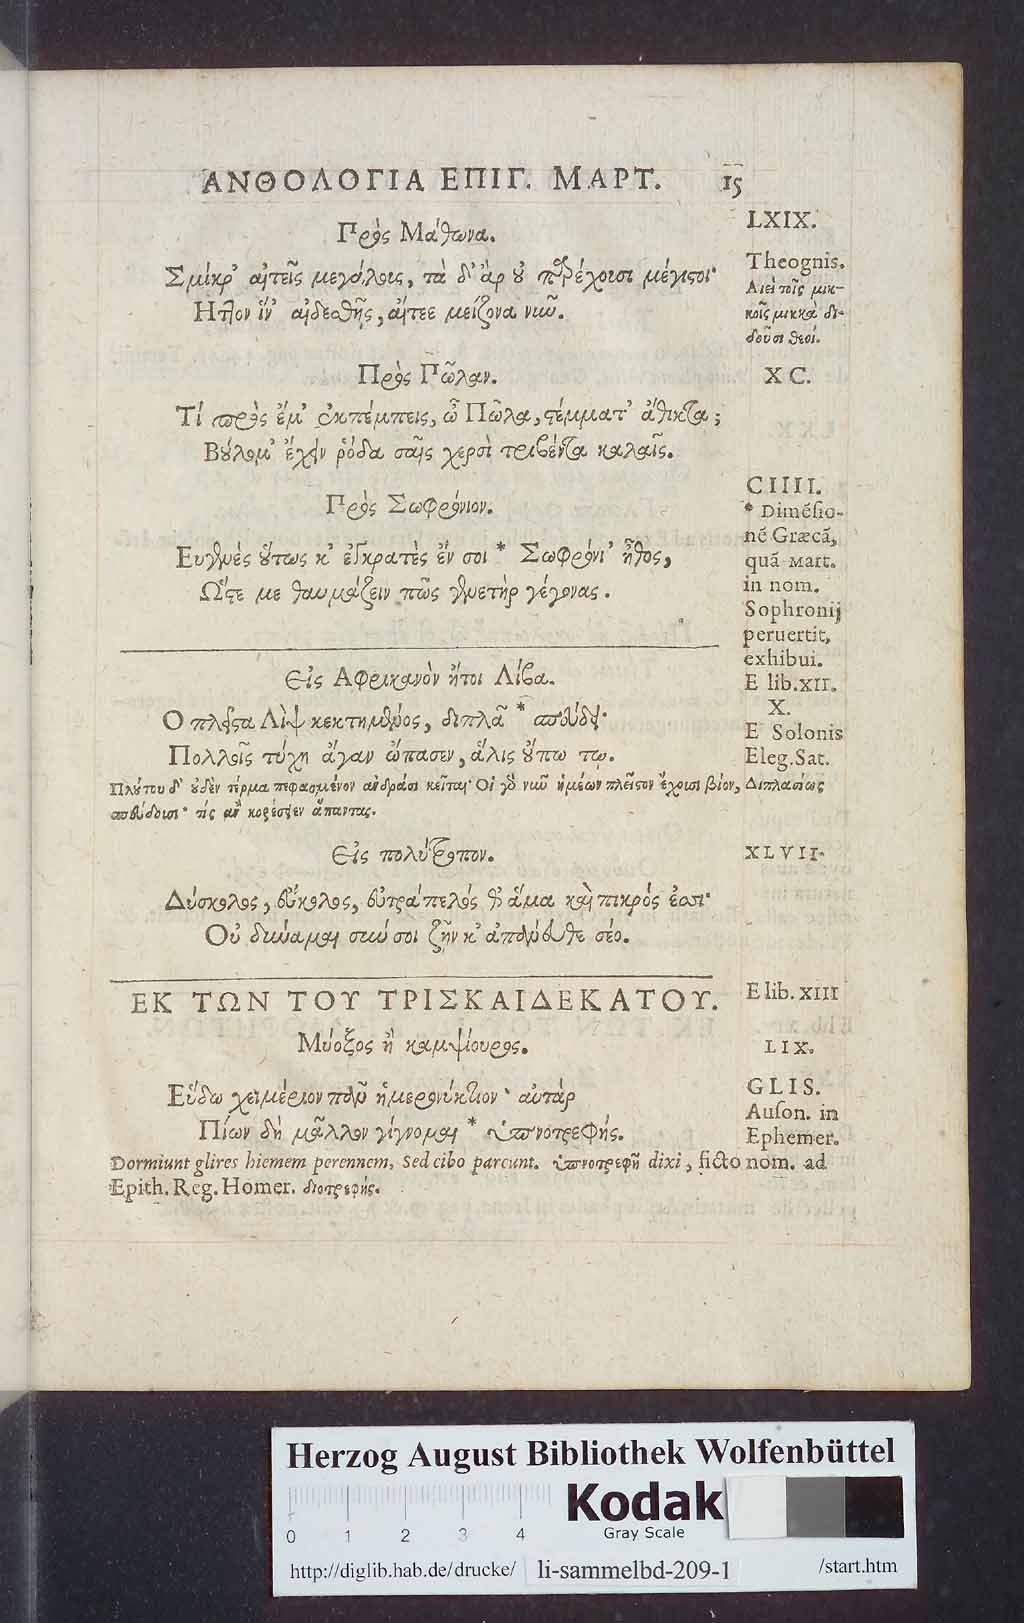 ΑΝΘΟΛΟΓΙΑ ΕΠΙΓ. ΜΑΡΤ. 15
LXIX.
Πρὸς Μάθωνα.
Σμίκρ' αἰτεῖς μεγάλοις, τὰ δ' ἂρ οὐ παρέχουσι μέγιστοι·
Ητ]ον ἵν' αἰδεσθῇς, αἴτεε μείζονα νῦν.
Theognis.
Αἰεὶ τοῖς μικ-
κοῖς μικκὰ δι-
δοῦσι θεοί.
XC.
Πρὸς Πῶλαν.
Τί πρὸς ἔμ' ἐκπέμπεις, ὦ Πῶλα, στέμματ' ἄθικτα;
Βούλομ' ἔχειν ῥόδα σαῖς χερσὶ τριβέντα καλαῖς.
CIIII.
Πρὸς Σωφρόνιον.
Ευγενὲς οὕτως κ' ἐγκρατὲς ἐν σοι * Σωφρόνι' ἦθος,
Ωστε με θαυμάζειν πῶς γενετὴρ γέγονας.
* Dimēsio-
nē Græcā,
quā Mart.
in nom.
Sophronij
peruertit,
exhibui.
E lib.XII.
X.
Εἰς Αφρικανὸν ἤτοι Λίβα.
Ο πλεῖστα Λὶψ κεκτημένος, διπλᾶ * σπεύδει·
Πολλοῖς τύχη ἄγαν ὤπασεν, ἅλις οὔπω τῳ.
E Solonis
Eleg.Sat.
Πλούτου δ' οὐδὲν τέρμα πεφασμένον ἀνδράσι κεῖται· Οἱ γὰρ νῦν ἡμέων πλεῖστον ἔχουσι βίον, Διπλασίως
σπεύδουσι· τίς ἂν κορέσειεν ἅπαντας.
XLVII.
Εἰς πολύτροπον.
Δύσκολος, εὔκολος, εὐτράπελός θ' ἅμα καὶ πικρός ἐσσι·
Οὐ δύναμαι σύν σοι ζῆν κ' ἀπάνευθε σέο.
E lib. XIII
ΕΚ ΤΩΝ ΤΟΥ ΤΡΙΣΚΑΙΔΕΚΑΤΟΥ.
LIX.
Μύοξος ἢ καμψίουρος.
Εὕδω χειμέριον πᾶν ἡμερονύκτιον· αὐτὰρ
Πίων δὴ μᾶλλον γίγνομαι * ὑπνοτρεφής.
GLIS.
Auson. in
Ephemer.
Dormiunt glires hiemem perennem, Sed cibo parcunt. ὑπνοτρεφῆ dixi, ficto nom. ad
Epith. Reg. Homer. διοτρεφής.
Herzog August Bibliothek Wolfenbüttel
Kodak
Gray Scale
0 1 2 3 4
http://diglib.hab.de/drucke/ li-sammelbd-209-1 /start.htm